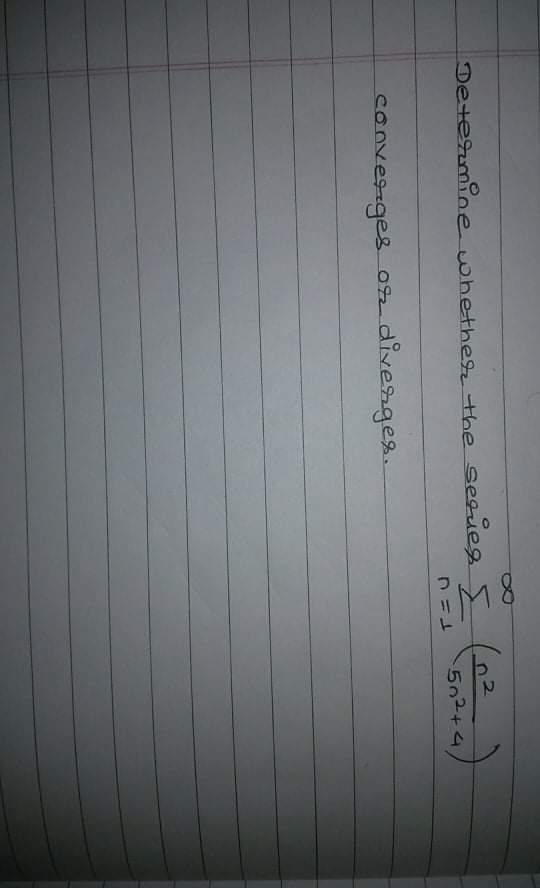 Determine whether the series ∞ Σ n=1 (n²/5n²+4)
converges or diverges.